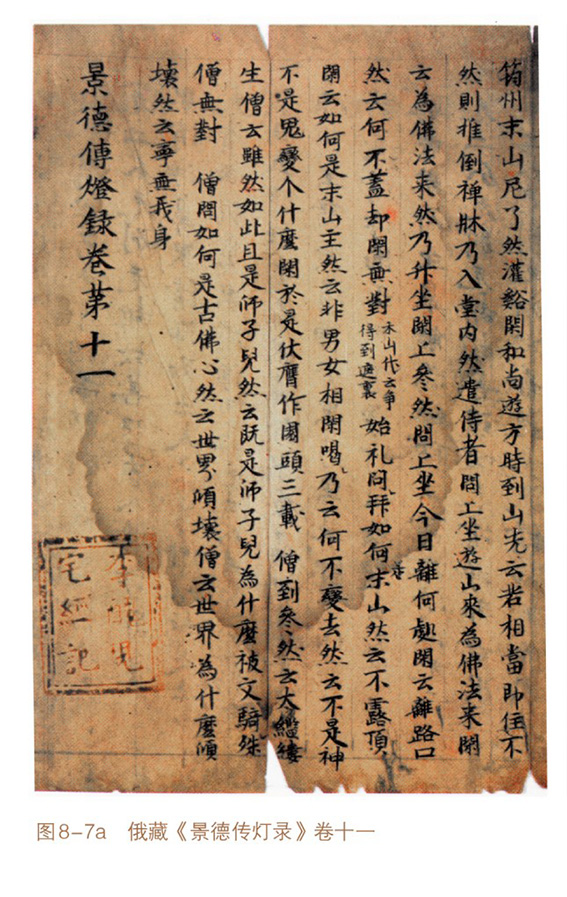 筠州末山尼了然灌谿閑和尚遊方時到山先云若相當即住不
然則推倒禪牀乃入堂内然遣侍者問上坐遊山來為佛法来閑
云為佛法来然乃升坐閑上叅然問上坐今日離何處閑云離路口
然云何不蓋却閑無對末山代云争得到遮裏始礼問拜如何末山然云不露頂
閑云如何是末山主然云非男女相閑喝乃云何不變去然云不是神
不是鬼變个什麼閑於是伏膺作園頭三載 僧到叅然云太繿縷
生僧云雖然如此且是師子兒然云既是師子兒為什麼被文騎殊
僧無對 僧問如何是古佛心然云世界傾壞僧云世界為什麼傾
壊然云寧無我身
景德傳燈録卷苐十一
李醜兒
宅經記
图8-7a 俄藏《景德传灯录》卷十一